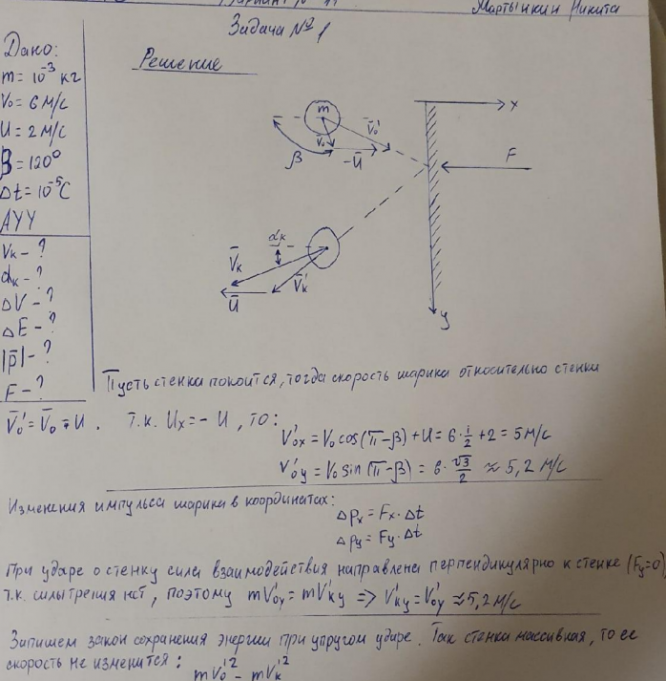 Мартынкин Никита
Задача №1
Дано:
m = 10⁻³ кг
V₀ = 6 м/с
U = 2 м/с
β = 120°
Δt = 10⁻⁵ С
АУУ
Vк - ?
αк - ?
ΔV - ?
ΔE - ?
|p̄| - ?
F - ?
Решение
m
V̄₀'
V₀
-Ū
β
x
F
αк
V̄к
V̄к'
Ū
y
Пусть стенка покоится, тогда скорость шарика относительно стенки
V̄₀' = V̄₀ + U. т.к. Uₓ = - U, то:
V'₀ₓ = V₀ cos(π-β) + U = 6 · 1/2 + 2 = 5 м/с
V'₀y = V₀ sin(π-β) = 6 · √3/2 ≈ 5,2 м/с
Изменения импульса шарика в координатах:
Δpₓ = Fₓ · Δt
Δpy = Fy · Δt
При ударе о стенку сила взаимодействия направлена перпендикулярно к стенке (Fy=0)
т.к. силы трения нет, поэтому mV'₀y = mV'кy => V'кy = V'₀y ≈ 5,2 м/с
Запишем закон сохранения энергии при упругом ударе. Так стенка массивная, то ее
скорость не изменится:
mV₀'² = mVк'²